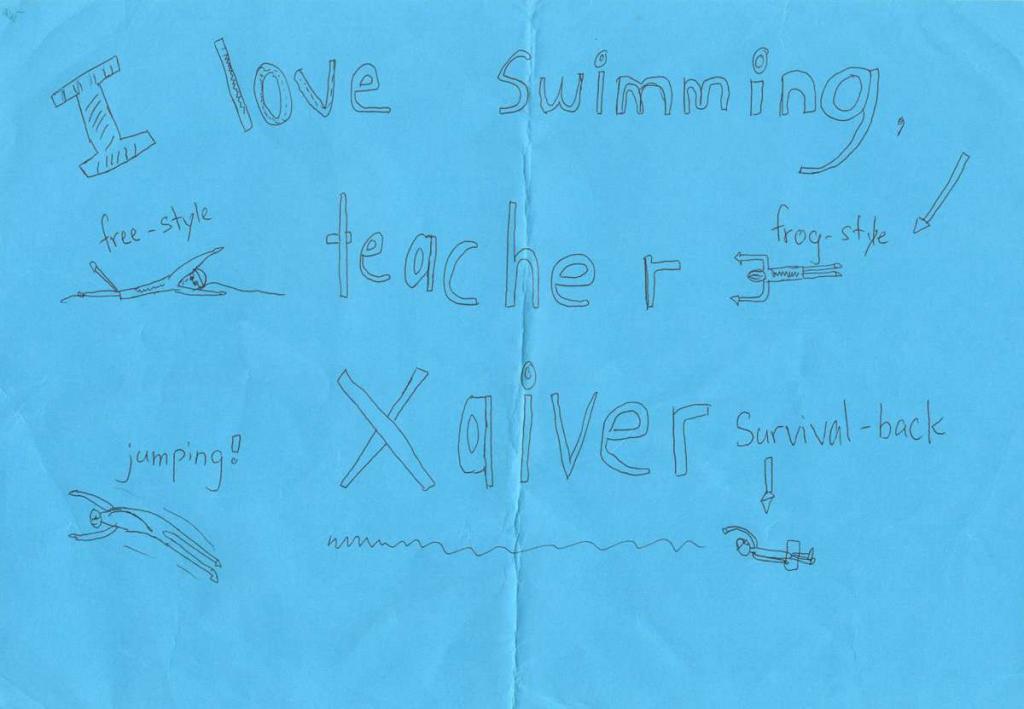 I love swimming,
free-style
teacher
frog-style
Xaiver
Survival-back
jumping!